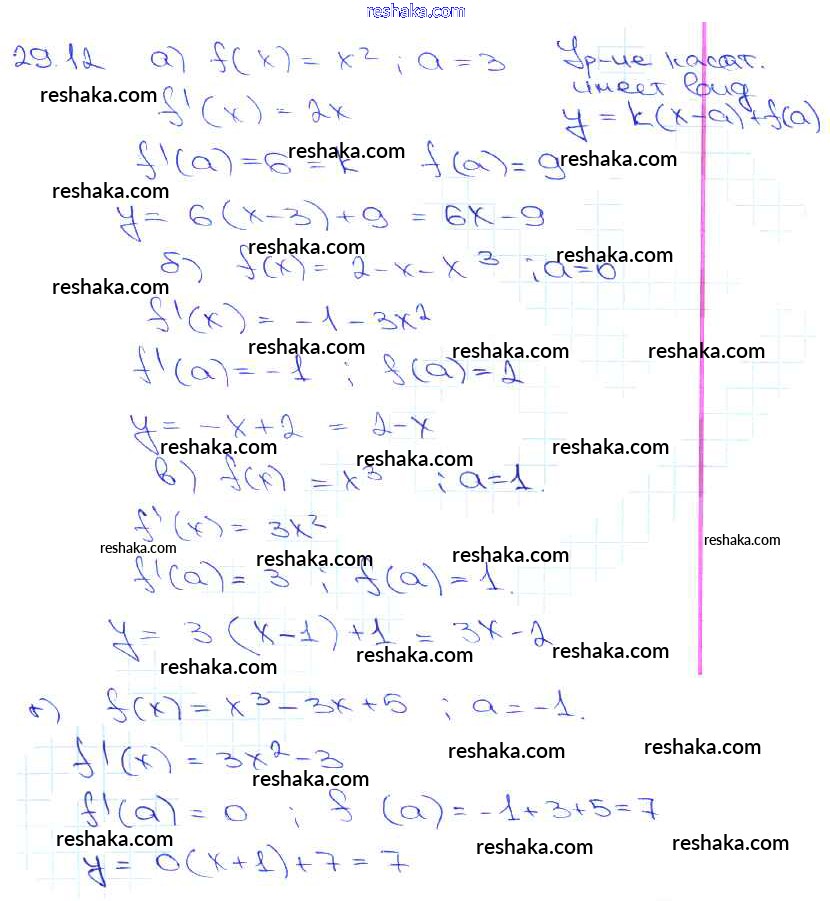 reshaka.com
29.12 а) f(x) = x² ; a = 3 Ур-ие касат.
имеет вид
reshaka.com
f'(x) = 2x y = k(x-a)+f(a)
f'(a) = 6 = k f(a) = 9
reshaka.com reshaka.com
reshaka.com
y = 6(x-3)+9 = 6x-9
reshaka.com reshaka.com
б) f(x) = 2-x-x³ ; a=0
reshaka.com
f'(x) = -1-3x²
reshaka.com reshaka.com reshaka.com
f'(a) = -1 ; f(a) = 2
y = -x+2 = 2-x
reshaka.com reshaka.com reshaka.com
в) f(x) = x³ ; a=1.
f'(x) = 3x²
reshaka.com reshaka.com reshaka.com reshaka.com
f'(a) = 3 ; f(a) = 1.
y = 3(x-1)+1 = 3x-2
reshaka.com reshaka.com reshaka.com
г) f(x) = x³-3x+5 ; a = -1.
f'(x) = 3x²-3
reshaka.com reshaka.com reshaka.com
f'(a) = 0 ; f(a) = -1+3+5=7
reshaka.com reshaka.com reshaka.com
y = 0(x+1)+7 = 7